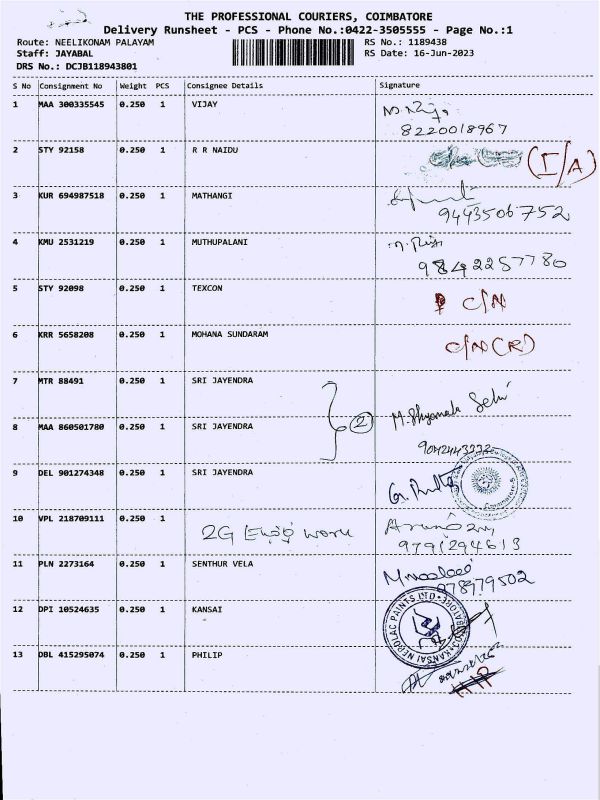 THE PROFESSIONAL COURIERS, COIMBATORE
Delivery Runsheet - PCS - Phone No.:0422-3505555 - Page No.:1
Route: NEELIKONAM PALAYAM RS No.: 1189438
Staff: JAYABAL RS Date: 16-Jun-2023
DRS No.: DCJB118943801
S No Consignment No Weight PCS Consignee Details Signature
1 MAA 300335545 0.250 1 VIJAY
8220018967
2 STY 92158 0.250 1 R R NAIDU (I/A)
3 KUR 694987518 0.250 1 MATHANGI
9443506752
4 KMU 2531219 0.250 1 MUTHUPALANI
9842257780
5 STY 92098 0.250 1 TEXCON C/N
6 KRR 5658208 0.250 1 MOHANA SUNDARAM C/N(R)
7 MTR 88491 0.250 1 SRI JAYENDRA
8 MAA 860501780 0.250 1 SRI JAYENDRA 2 M. Shyamala
9 DEL 901274348 0.250 1 SRI JAYENDRA
10 VPL 218709111 0.250 1 2G
9791294613
11 PLN 2273164 0.250 1 SENTHUR VELA
12 DPI 10524635 0.250 1 KANSAI
KANSAI NEROLAC PAINTS LTD
13 DBL 415295074 0.250 1 PHILIP